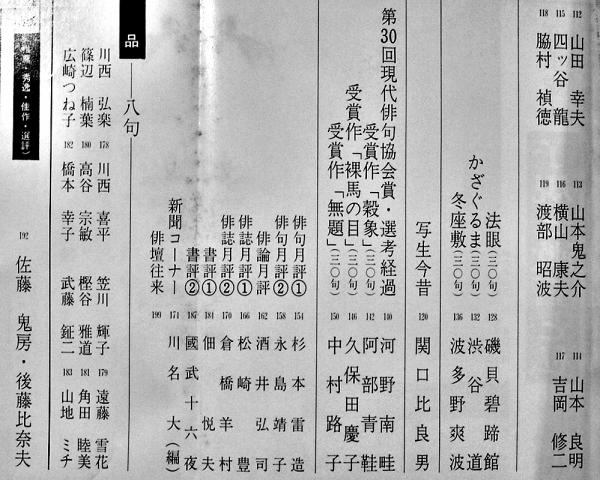 112 山田 幸夫 113 山本鬼之介 114 山本 良明
115 四ッ谷 龍 116 横山 康夫 117 吉岡 修二
118 脇村 禎徳 119 渡部 昭波
法眼(三〇句) 128 磯貝碧蹄館
かざぐるま(三〇句) 132 渋谷 道
冬座敷(三〇句) 136 波多野爽波
写生今昔 120 関口比良男
第30回現代俳句協会賞・選考経過 110 河野南畦
受賞作「穀象」(三〇句) 142 阿部青鞋
受賞作「裸馬の目」(三〇句) 146 久保田慶子
受賞作「無題」(三〇句) 150 中村路子
俳句月評① 154 杉本雷造
俳句月評② 158 永島靖子
俳論月評 162 酒井弘司
俳誌月評① 166 松崎 豊
俳誌月評② 170 倉橋羊村
書評① 184 佃 悦夫
書評② 187 國武十六夜
新聞コーナー 171 川名 大(編)
俳壇往来 199
品
八句
川西 弘楽 178 川西 喜平 笠川 輝子 179 遠藤 雪花
篠辺 楠葉 180 高谷 宗敏 樫谷 雅道 181 角田 睦美
広崎つね子 182 橋本 幸子 武藤 鉦二 183 山地 ミチ
秀逸・佳作・選評)
192 佐藤 鬼房・後藤比奈夫